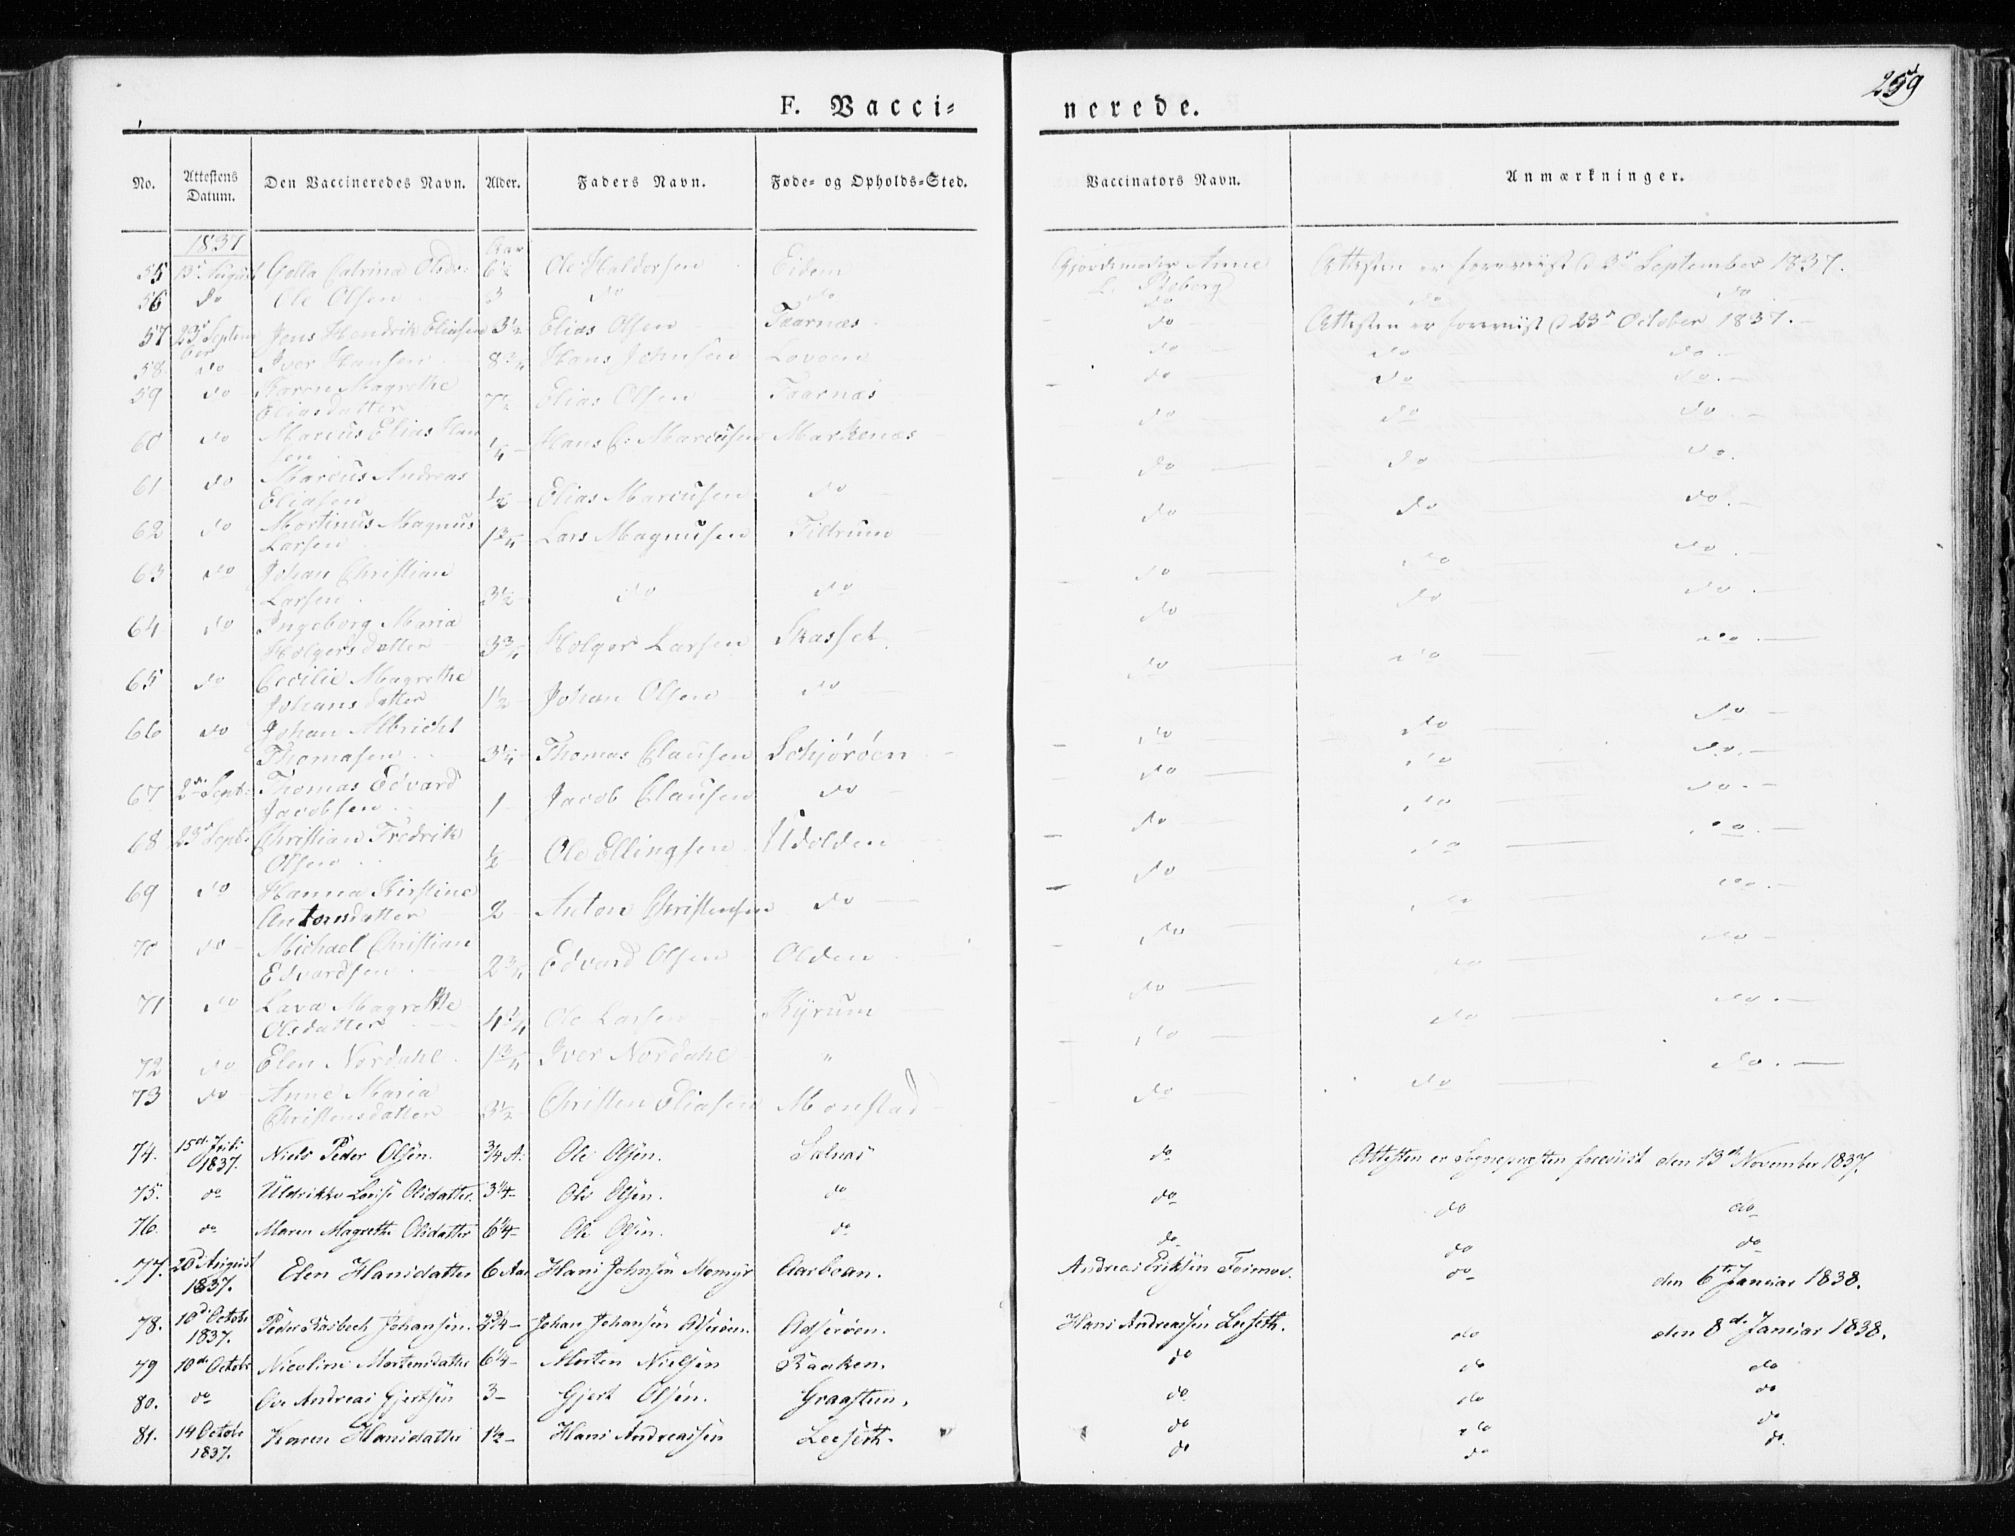 259
F. Vacci= nerede.
No. Attestens Datum. Den Vaccineredes Navn. Alder. Faders Navn. Føde- og Opholds-Sted. Vaccinators Navn. Anmærkninger.
1837 Aar
55 13d August Catrina Olsdr 6½ Ole Haldorsen Eidem Gjordemoder Anne Attesten er foreviist d 3d September 1837.
56 do Ole Olsen 3 do do do do do
57 23d September Jens Hendrik Eliasen 3½ Elias Olsen Taarnæs do Attesten er foreviist d 23d October 1837.
58 do Iver Hansen 8¾ Hans Johnsen do do do
59 do Karen Magrethe Eliasdatter 7½ Elias Olsen Taarnæs do do do
60 do Marcus Elias Hansen ¼ Hans C. Marcusen Markenæs do do do
61 do Marcus Andreas Eliasen ½ Elias Marcusen do do do do
62 do Martinus Magnus Larsen 1¾ Lars Magnusen Tiltrum do do do
63 do Johan Christian Larsen 3½ do do do do do
64 do Ingeborg Maria Holgersdatter 3¾ Holger Larsen Skasset do do do
65 do Cecilie Magrethe Johansdatter 1½ Johan Olsen do do do do
66 do Johan Albricht Thomasen 3¼ Thomas Clausen Schjøröen do do do
67 2d Septb Thomas Edvard Jacobsen 1 Jacob Clausen do do do do
68 23d Septb Christian Fredrik Olsen ½ Ole Ellingsen Udolden do do do
69 do Hanna Kirstine Antonsdatter 2 Anton Christensen do do do do
70 do Michael Christian Edvardsen 2¾ Edvard Olsen Olden do do do
71 do Lava Magrethe Olsdatter 4¾ Ole Larsen Kyrum do do do
72 do Elen Nordahl 1¾ Iver Nordahl " do do do
73 do Anne Maria Christensdatter 3½ Christen Eliasen Monstad do do do
74. 15d Juli 1837. Niels Peder Olsen. ¾ A. Ole Olsen. Selnæs do Attesten er Sognepræsten foreviist den 13de November 1837.
75. do Uldrikke Lovise Olsdatter. 3¼ Ole Olsen. do do do do
76. do Maren Magrethe Olsdatter 6¼ Ole Olsen. do do do do
77. 20d August 1837. Elen Hansdatter 6 Aar Hans Johnsen Momyr Aarboan. Andreas Eriksen do den 6te Januar 1838.
78. 10d Octobr 1837. Peder Johansen. Johan Johansen Adserøen. Hans Andreassen Leeseth. do den 8de Januar 1838.
79 10de Octobr Nicoline Mortensdatter 6¼ Morten Nielsen Raaken. do do do
80. do Ove Andreas Gjertsen 3 Gjert Olsen. Graasteen. do do do
81. 14 Octobr 1837. Karen Hansdatter 1½ Hans Andreassen Leeseth. do do do
do do do